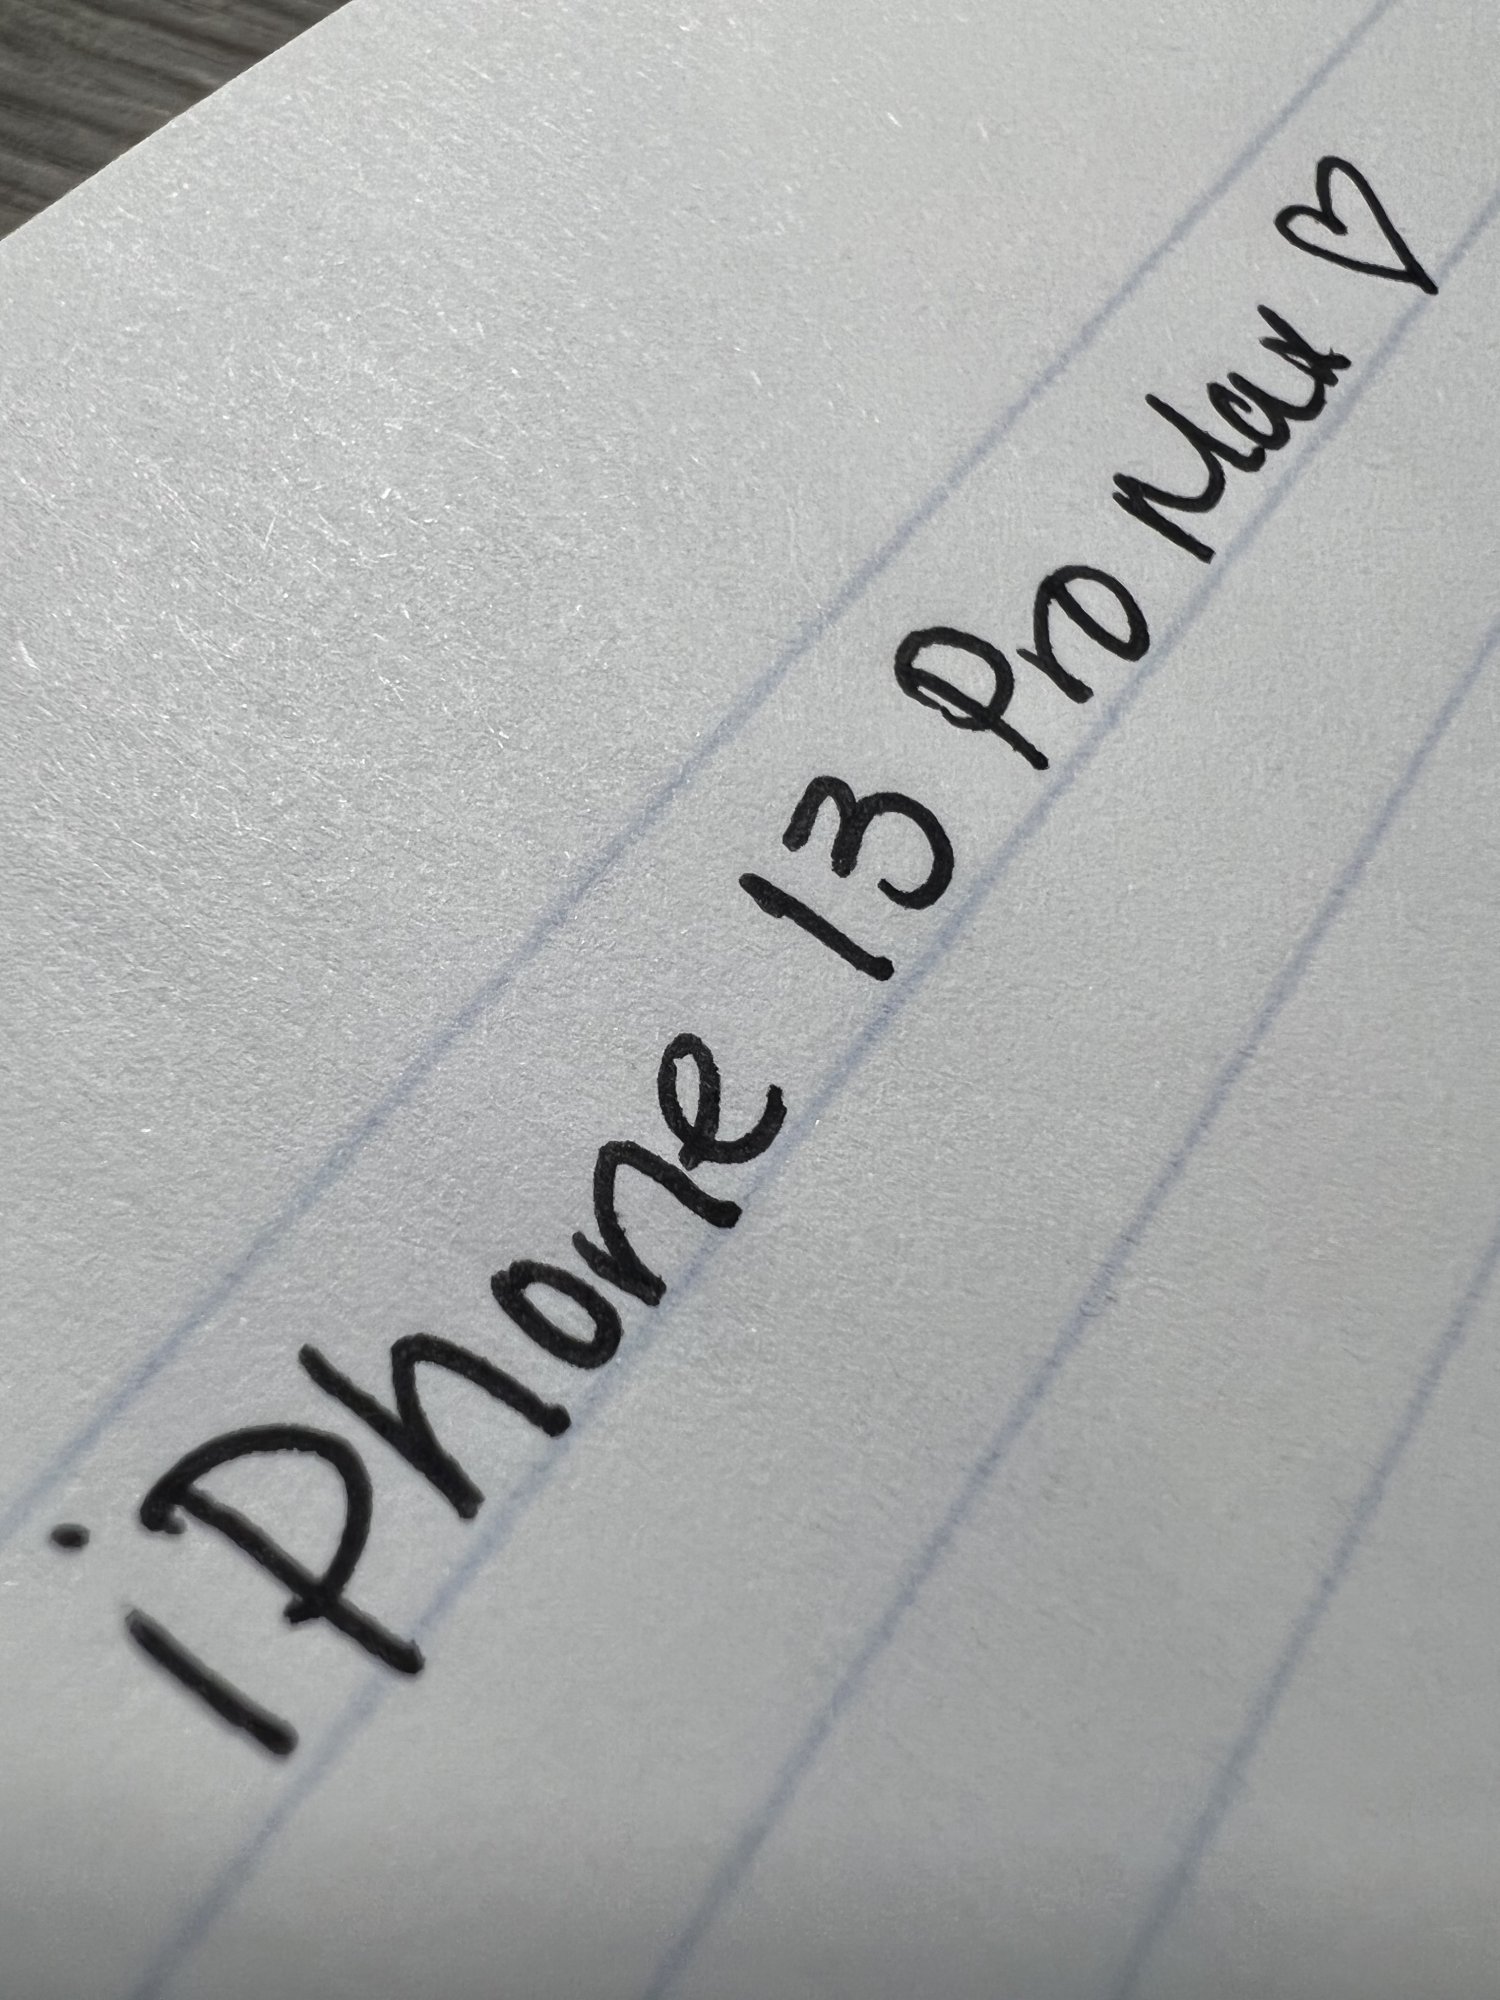 iPhone 13 Pro Max ♡